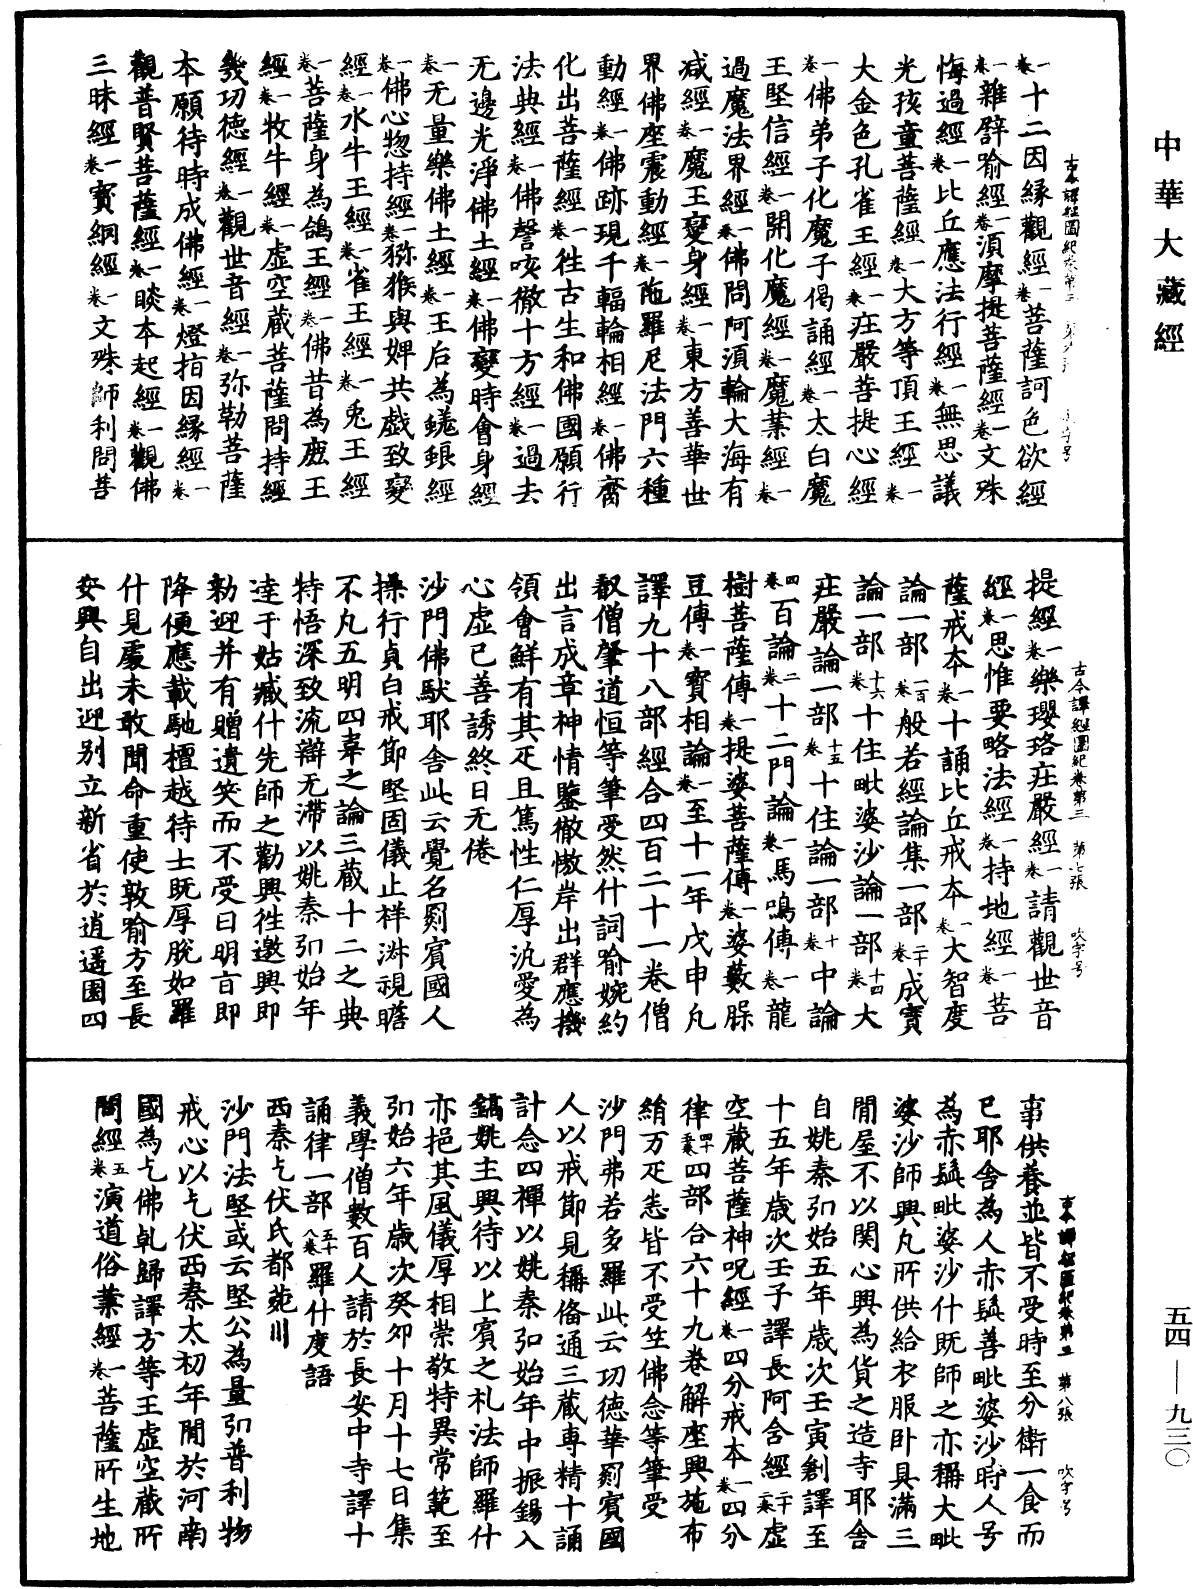 中華大藏經
五四—九三〇
卷一十二因緣觀經卷一菩薩訶色欲經
卷一雜譬喻經卷一須摩提菩薩經卷一文殊
悔過經卷一比丘應法行經卷一無思議
光孩童菩薩經卷一大方等頂王經卷一
大金色孔雀王經卷一莊嚴菩提心經
卷一佛弟子化魔子偈誦經卷一太白魔
王堅信經卷一開化魔經卷一魔業經卷一
過魔法界經卷一佛問阿須輪大海有
減經卷一魔王變身經卷一東方善華世
界佛座震動經卷一陁羅尼法門六種
動經卷一佛跡現千輻輪相經卷一佛齋
化出菩薩經卷一徃古生和佛國願行
法典經卷一佛謦咳徹十方經卷一過去
无邊光淨佛土經卷一佛變時會身經
卷一无量樂佛土經卷一王后為蜣蜋經
卷一佛心惣持經卷一猕猴與婢共戲致變
經卷一水牛王經卷一雀王經卷一兎王經
卷一菩薩身為鴿王經卷一佛昔為鹿王
經卷一牧牛經卷一虛空藏菩薩問持經
幾功德經卷一觀世音經卷一弥勒菩薩
本願待時成佛經卷一燈指因緣經卷一
觀普賢菩薩經卷一睒本起經卷一觀佛
三昧經卷一寶網經卷一文殊師利問菩
古今譯經圖紀卷第三 第七張 吹字号
提經卷一樂瓔珞莊嚴經卷一請觀世音
經卷一思惟要略法經卷一持地經卷一菩
薩戒本卷一十誦比丘戒本卷一大智度
論一部一百卷般若經論集一部二十卷成實
論一部十六卷十住毗婆沙論一部十四卷大
莊嚴論一部十五卷十住論一部十卷中論
四卷百論二卷十二門論一卷馬鳴傳一卷龍
樹菩薩傳一卷提婆菩薩傳一卷婆藪槃
豆傳一卷實相論一卷至十一年戊申凡
譯九十八部經合四百二十一卷僧
叡僧肇道恒等筆受然什詞喻婉約
出言成章神情鑒徹慠岸出群應機
領會鮮有其疋且篤性仁厚汎愛為
心虛已善誘終日无倦
沙門佛馱耶舍此云覺名罽賓國人
操行貞白戒節堅固儀止祥淋視瞻
不凡五明四韋之論三藏十二之典
特悟深致流辯无滯以姚秦弘始年
逹于姑臧什先師之勸興徃邀興即
勑迎并有贈遺笑而不受曰明旨即
降便應載馳檀越待士既厚脫如羅
什見處未敢聞命重使敦喻方至長
安興自出迎別立新省於逍遥園四
第八張 吹字号
事供養並皆不受時至分衛一食而
已耶舍為人赤髭善毗婆沙時人号
為赤髭毗婆沙什既師之亦稱大毗
婆沙師興凡所供給衣服卧具滿三
間屋不以關心興為貨之造寺耶舍
自姚秦弘始五年歲次壬寅創譯至
十五年歲次壬子譯長阿含經二十二卷虛
空藏菩薩神呪經一卷四分戒本一卷四分
律四十五卷四部合六十九卷解座興施布
絹万疋恙皆不受竺佛念等筆受
沙門弗若多羅此云功德華罽賓國
人以戒節見稱俻通三藏専精十誦
計念四禪以姚秦弘始年中振錫入
鎬姚主興待以上賓之札法師羅什
亦挹其風儀厚相崇敬特異常範至
弘始六年歲次癸夘十月十七日集
義學僧數百人請於長安中寺譯十
誦律一部五十八卷羅什度語
西秦乞伏氏都菀川
沙門法堅或云堅公為量弘普利物
戒心以乞伏西秦太初年間於河南
國為乞佛乹歸譯方等王虛空藏所
問經五卷演道俗業經一卷菩薩所生地